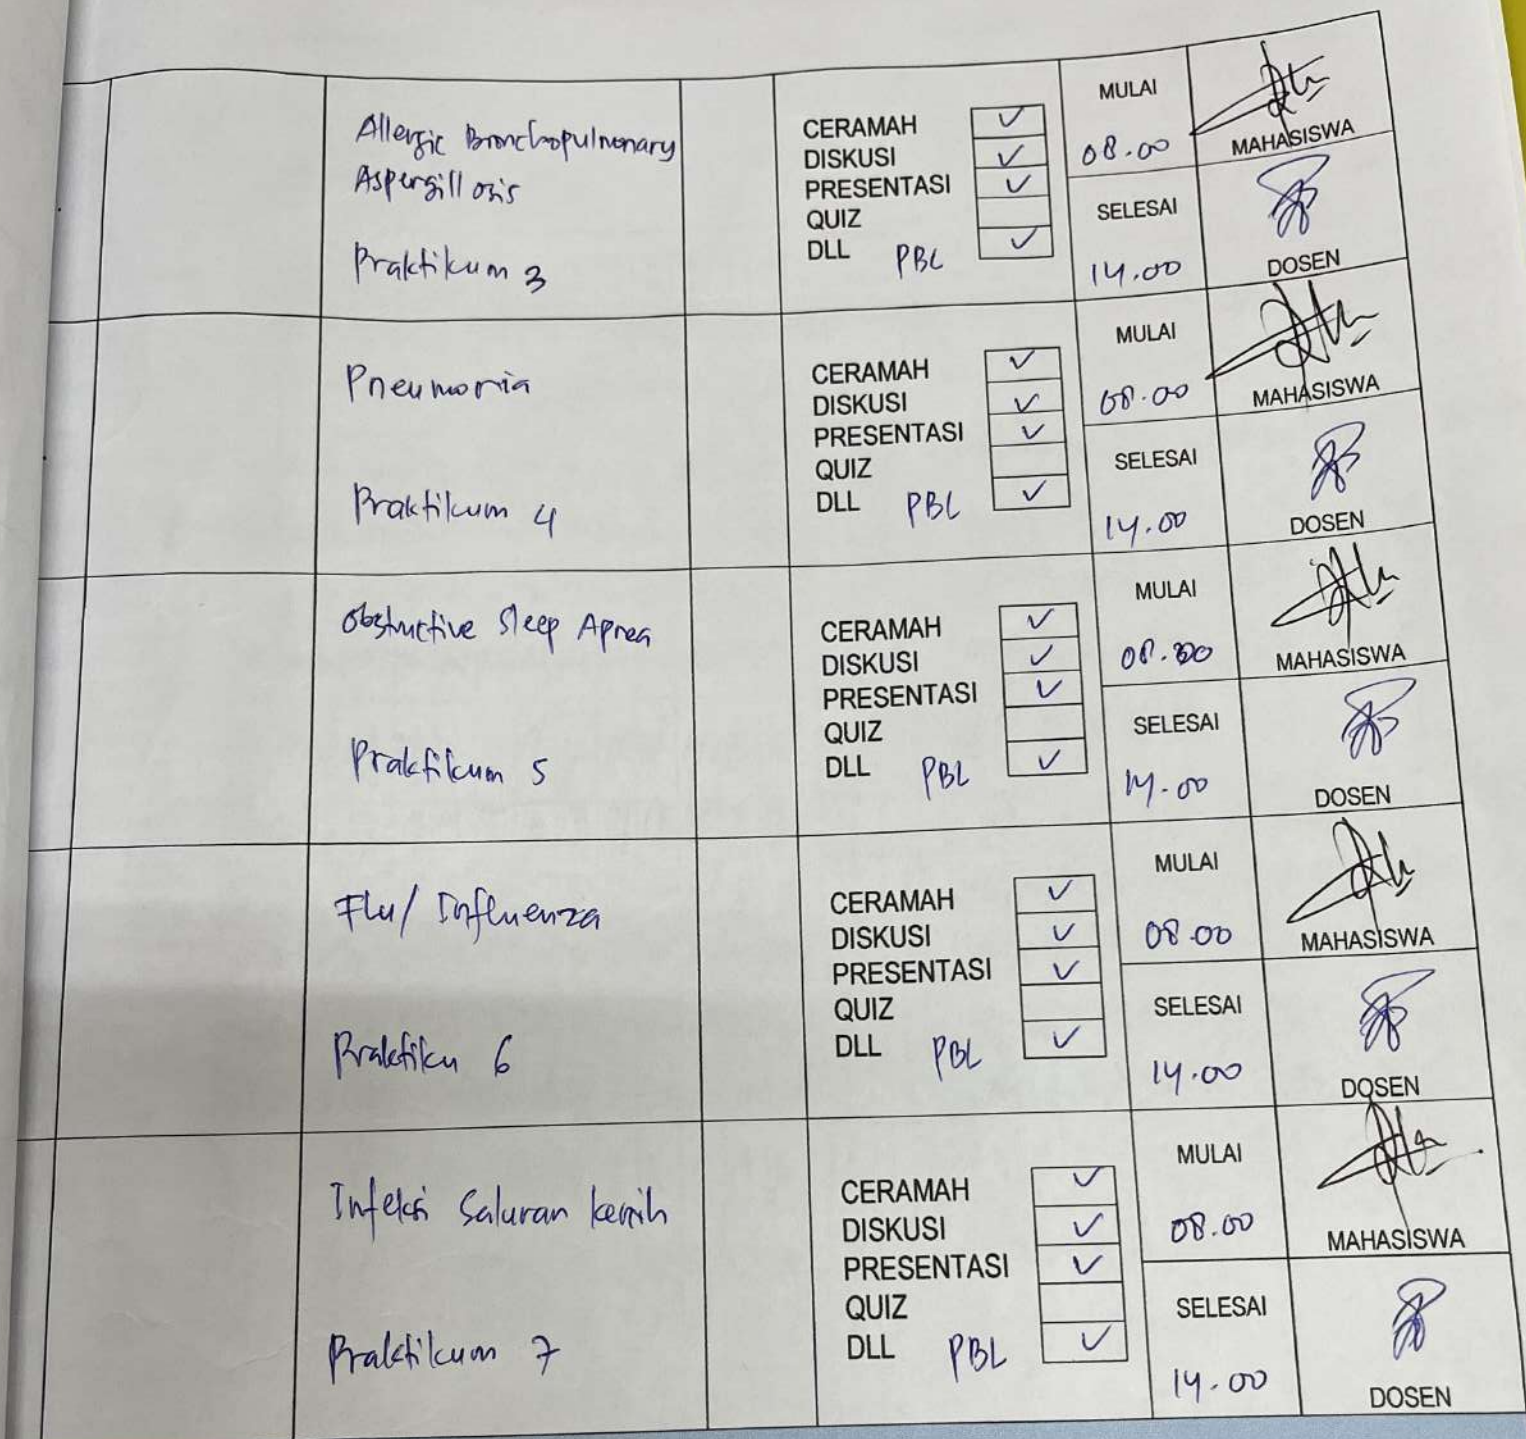 Allergic Bronchopulmonary
Aspergillosis
Praktikum 3
CERAMAH ✓
DISKUSI ✓
PRESENTASI ✓
QUIZ
DLL PBL ✓
MULAI
08.00
SELESAI
14.00
MAHASISWA
DOSEN
Pneumonia
Praktikum 4
CERAMAH ✓
DISKUSI ✓
PRESENTASI ✓
QUIZ
DLL PBL ✓
MULAI
08.00
SELESAI
14.00
MAHASISWA
DOSEN
Obstructive Sleep Apnea
Praktikum 5
CERAMAH ✓
DISKUSI ✓
PRESENTASI ✓
QUIZ
DLL PBL ✓
MULAI
08.00
SELESAI
14.00
MAHASISWA
DOSEN
Flu/ Influenza
Praktiku 6
CERAMAH ✓
DISKUSI ✓
PRESENTASI ✓
QUIZ
DLL PBL ✓
MULAI
08.00
SELESAI
14.00
MAHASISWA
DOSEN
Infeksi Saluran kemih
Praktikum 7
CERAMAH ✓
DISKUSI ✓
PRESENTASI ✓
QUIZ
DLL PBL ✓
MULAI
08.00
SELESAI
14.00
MAHASISWA
DOSEN